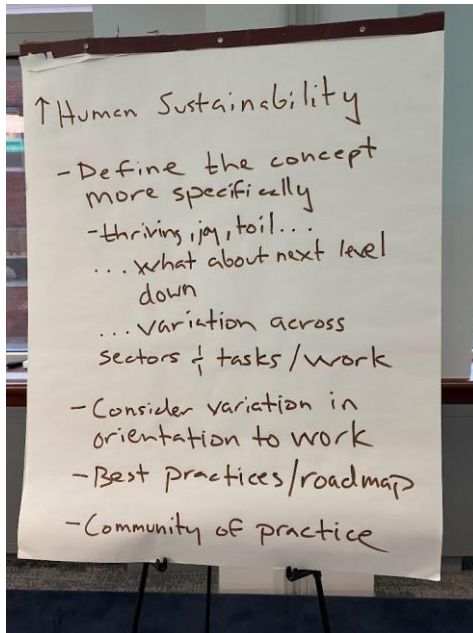 ↑ Human Sustainability
- Define the concept
more specifically
- thriving, joy, toil...
... what about next level
down
... variation across
sectors & tasks/work
- Consider variation in
orientation to work
- Best practices/roadmap
- Community of practice